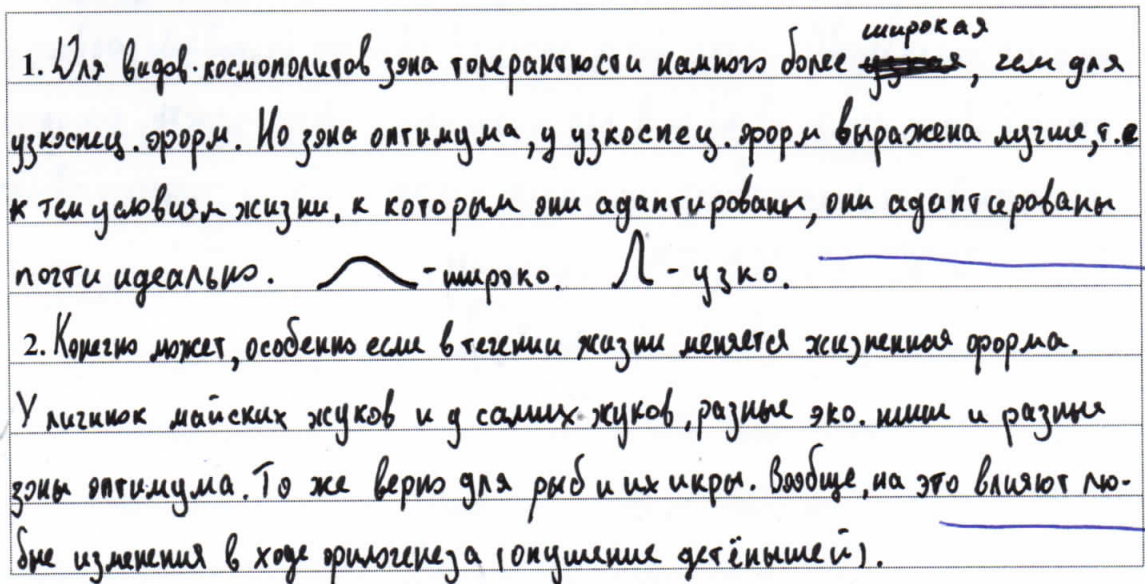 широкая
1. Для видов-космополитов зона толерантности намного более узкая, чем для
узкоспец. форм. Но зона оптимума, у узкоспец. форм выражена лучше, т.е
к тем условиям жизни, к которым они адаптированы, они адаптированы
почти идеально. - широко. - узко.
2. Конечно может, особенно если в течении жизни меняется жизненная форма.
У личинок майских жуков и у самих жуков, разные эко. ниши и разные
зоны оптимума. То же верно для рыб и их икры. Вообще, на это влияют лю-
бые изменения в ходе филогенеза (опушение детёнышей).